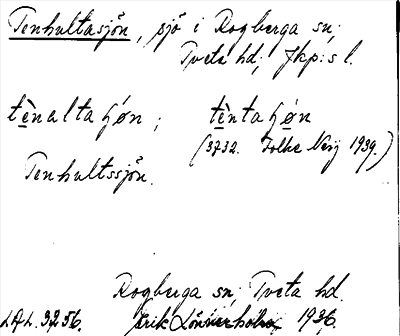 Tenhultasjön, sjö i Rogberga sn,
Tveta hd, Jkp:s l.
tènaltaɧøn ; tèntaɧøn
(3732. Folke Neij 1939.)
Tenhultssjön.
Rogberga sn, Tveta hd.
LAL. 3256. Erik Lönnerholm 1936.